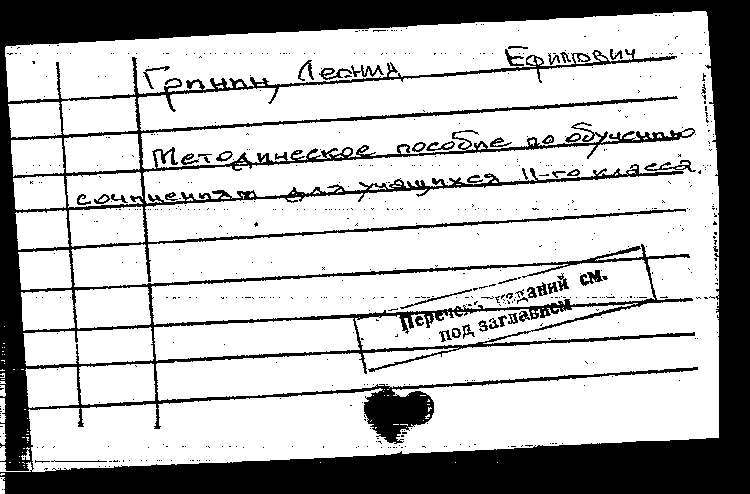 Гринин, Леонид Ефимович
Методическое пособие по обучению
сочинениям для учащихся 11-го класса.
Перечень изданий см.
под заглавием